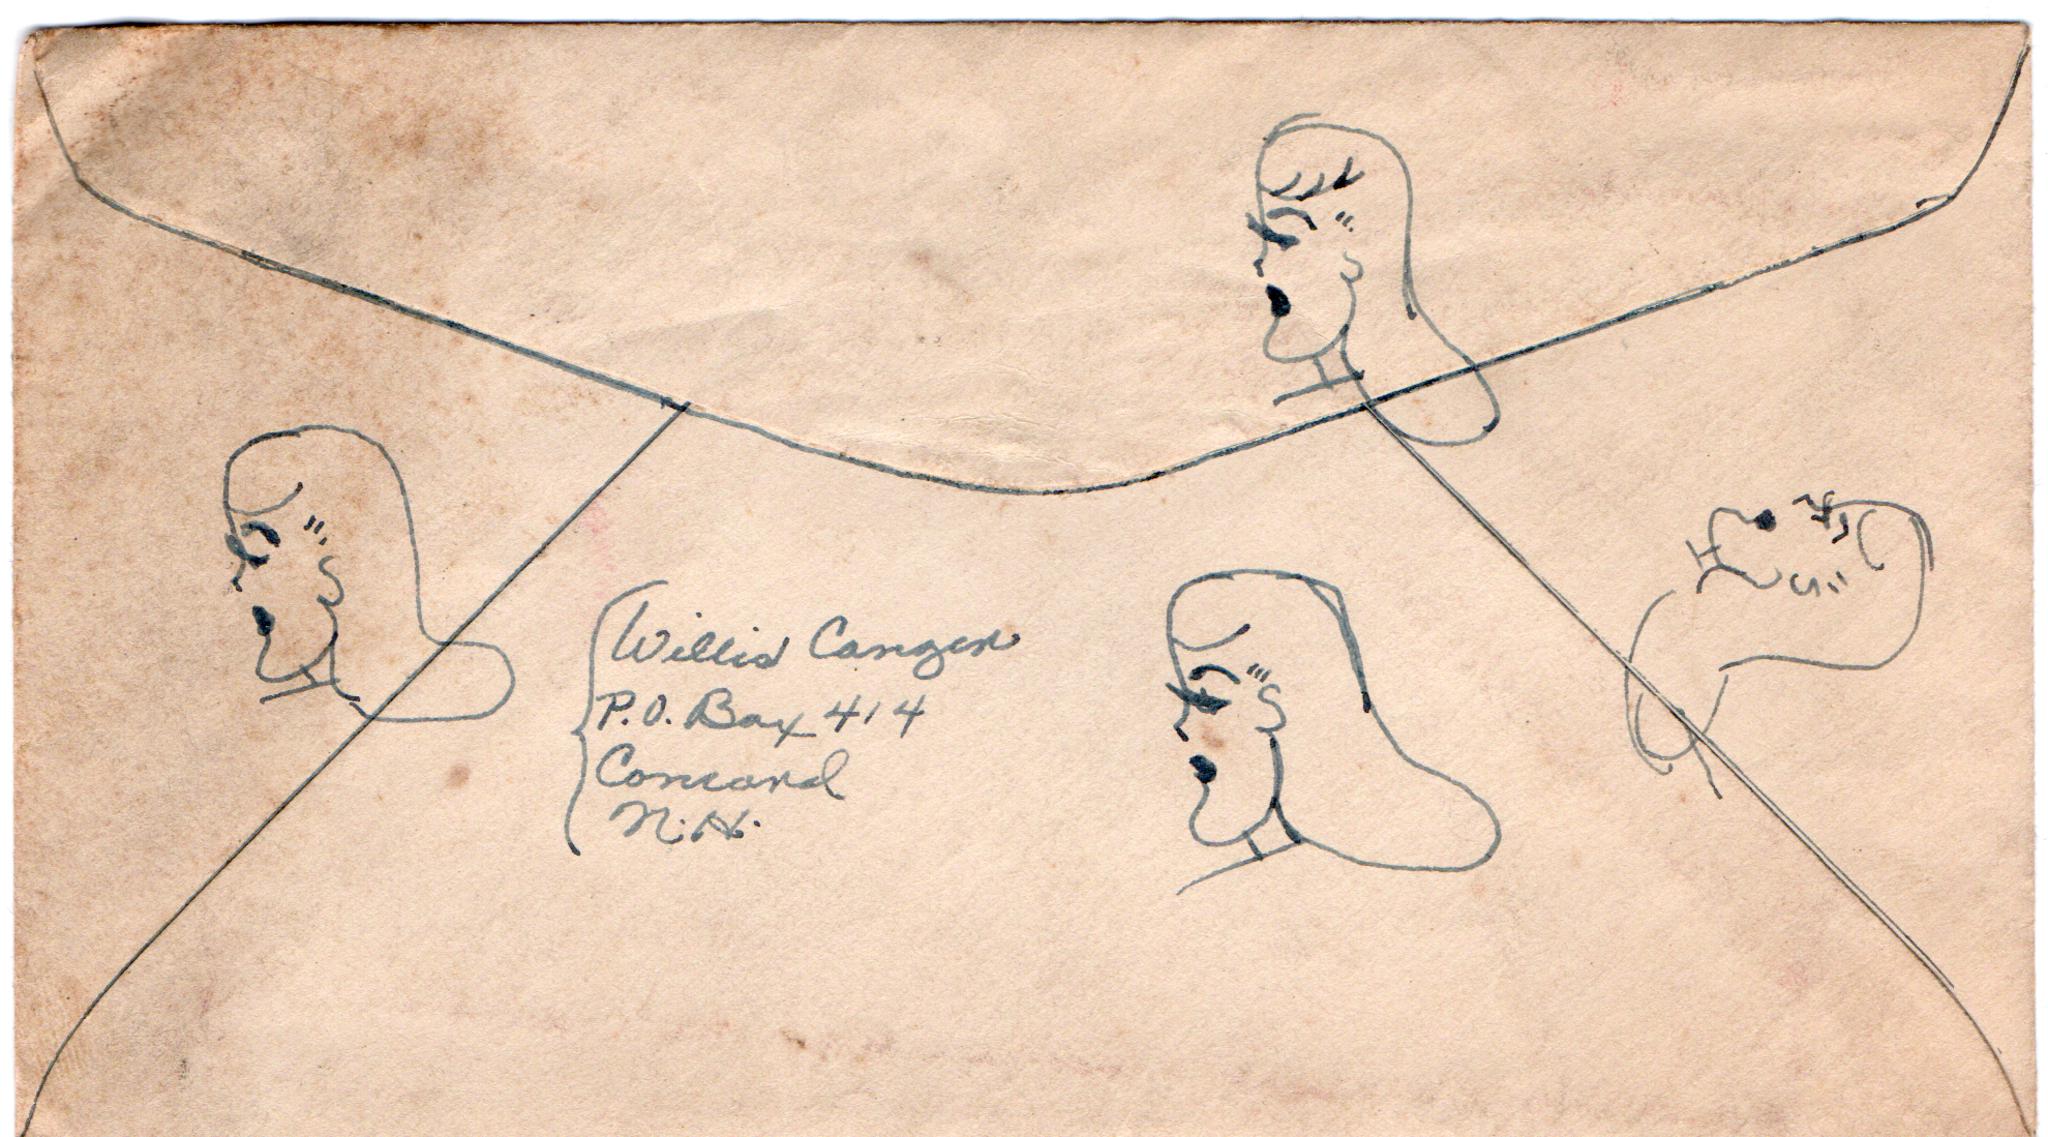 Willis Canzen
P.O. Box 414
Concord
N.H.